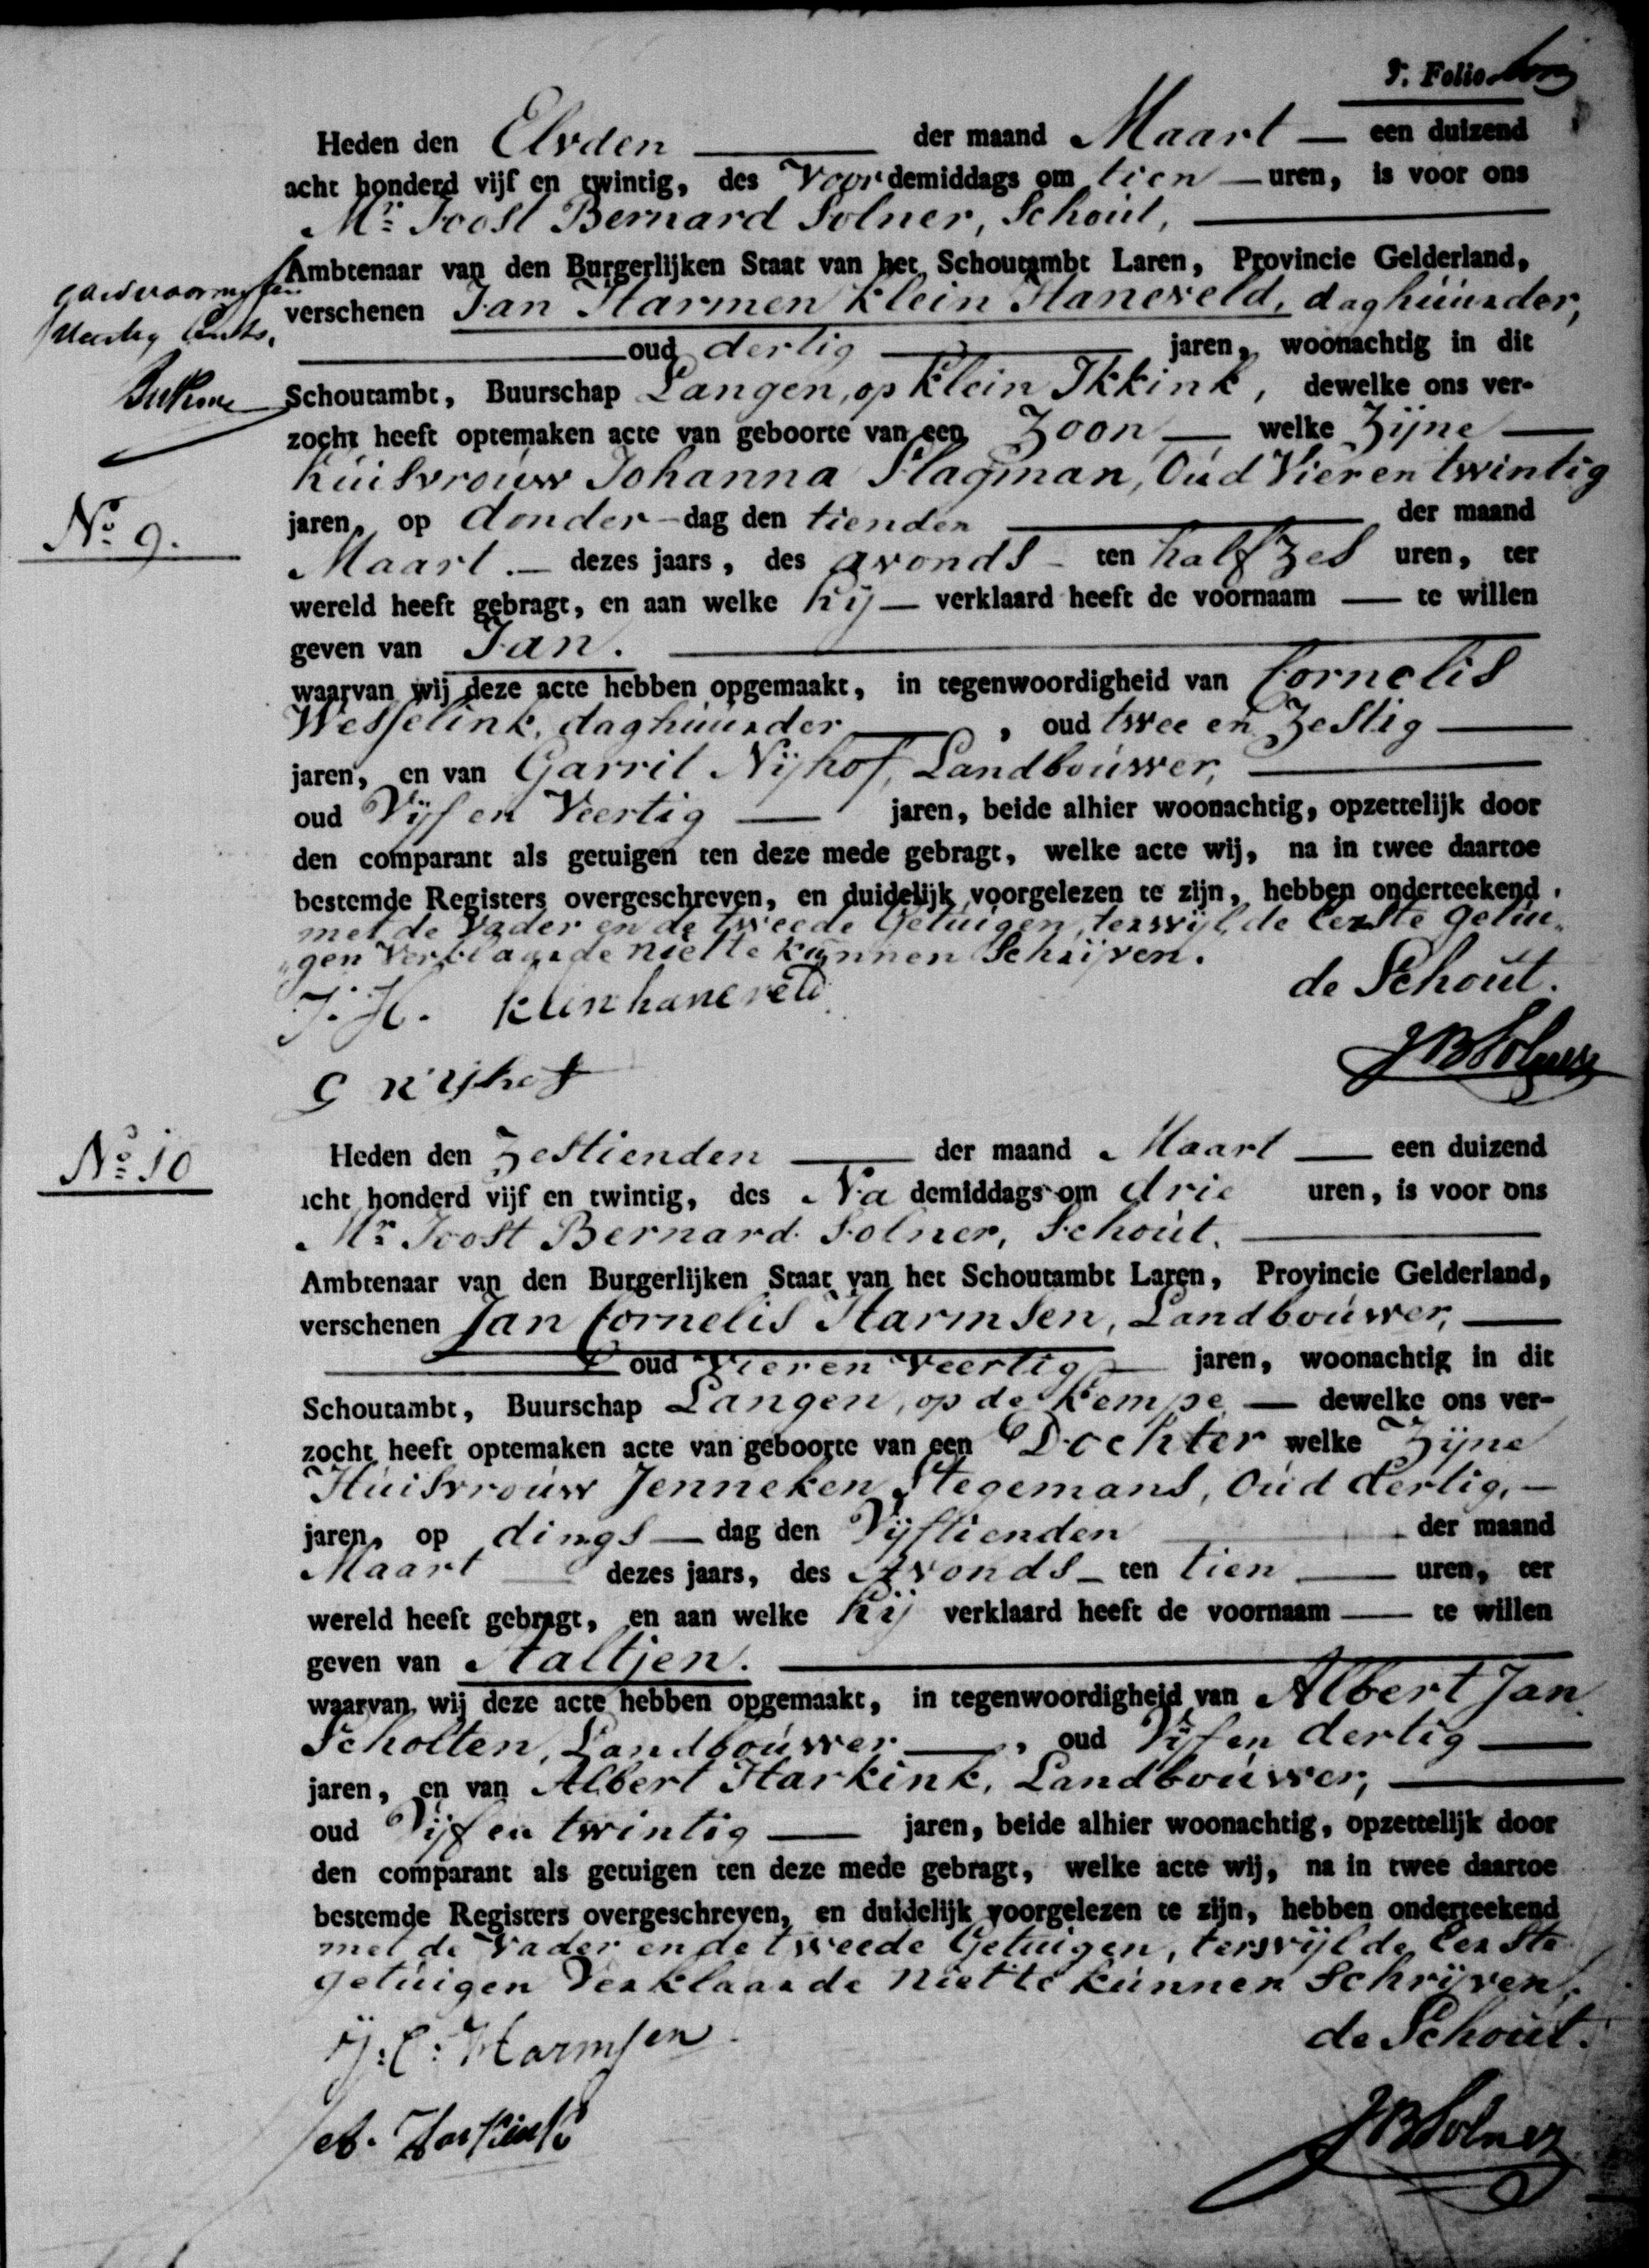 5. Folio
Heden den Elvden der maand Maart — een duizend
acht honderd vijf en twintig, des Voor demiddags om tien — uren, is voor ons
Mr. Joost Bernard Solner, Schout,
Ambtenaar van den Burgerlijken Staat van het Schoutambt Laren, Provincie Gelderland,
verschenen Jan Harmen Klein Haneveld, daghuurder,
oud dertig jaren, woonachtig in dit
Schoutambt, Buurschap Langen, op Klein Ikkink, dewelke ons ver-
zocht heeft optemaken acte van geboorte van een Zoon — welke Zijne
huisvrouw Johanna Slagman, Oud Vier en twintig
No. 9.
jaren, op donder-dag den tienden der maand
Maart. — dezes jaars, des avonds - ten half Zes uren, ter
wereld heeft gebragt, en aan welke hij — verklaard heeft de voornaam — te willen
geven van Jan.
waarvan wij deze acte hebben opgemaakt, in tegenwoordigheid van Cornelis
Wesselink, daghuurder, oud twee en Zestig
jaren, en van Garrit Nijhof, Landbouwer,
oud Vijf en Veertig jaren, beide alhier woonachtig, opzettelijk door
den comparant als getuigen ten deze mede gebragt, welke acte wij, na in twee daartoe
bestemde Registers overgeschreven, en duidelijk voorgelezen te zijn, hebben onderteekend,
met de Vader en de tweede Getuigen, terwijl de eerste getui-
„gen Verklaarde niet te kunnen Schrijven.
de Schout.
J. H. klein haneveld
JBSolner
G Nijhof
No. 10
Heden den Zestienden der maand Maart — een duizend
acht honderd vijf en twintig, des Na demiddags om drie uren, is voor ons
Mr. Joost Bernard Solner, Schout.
Ambtenaar van den Burgerlijken Staat van het Schoutambt Laren, Provincie Gelderland,
verschenen Jan Cornelis Harmsen, Landbouwer,
oud Vier en Veertig jaren, woonachtig in dit
Schoutambt, Buurschap Langen, op de Kempe — dewelke ons ver-
zocht heeft optemaken acte van geboorte van een Dochter welke Zijne
Huisvrouw Jenneken Stegemans, Oud dertig, —
jaren, op dings — dag den Vijftienden der maand
Maart dezes jaars, des Avonds - ten tien — uren, ter
wereld heeft gebragt, en aan welke hij verklaard heeft de voornaam — te willen
geven van Aaltjen.
waarvan wij deze acte hebben opgemaakt, in tegenwoordigheid van Albert Jan
Scholten, Landbouwer —, oud Vijf en dertig
jaren, en van Albert Harkink, Landbouwer,
oud Vijf en twintig jaren, beide alhier woonachtig, opzettelijk door
den comparant als getuigen ten deze mede gebragt, welke acte wij, na in twee daartoe
bestemde Registers overgeschreven, en duidelijk voorgelezen te zijn, hebben onderteekend
met de Vader en de tweede Getuigen, terwijl de eerste
getuigen Verklaarde niet te kunnen Schrijven.
de Schout.
J: C: Harmsen
A. Harkink
JBSolner